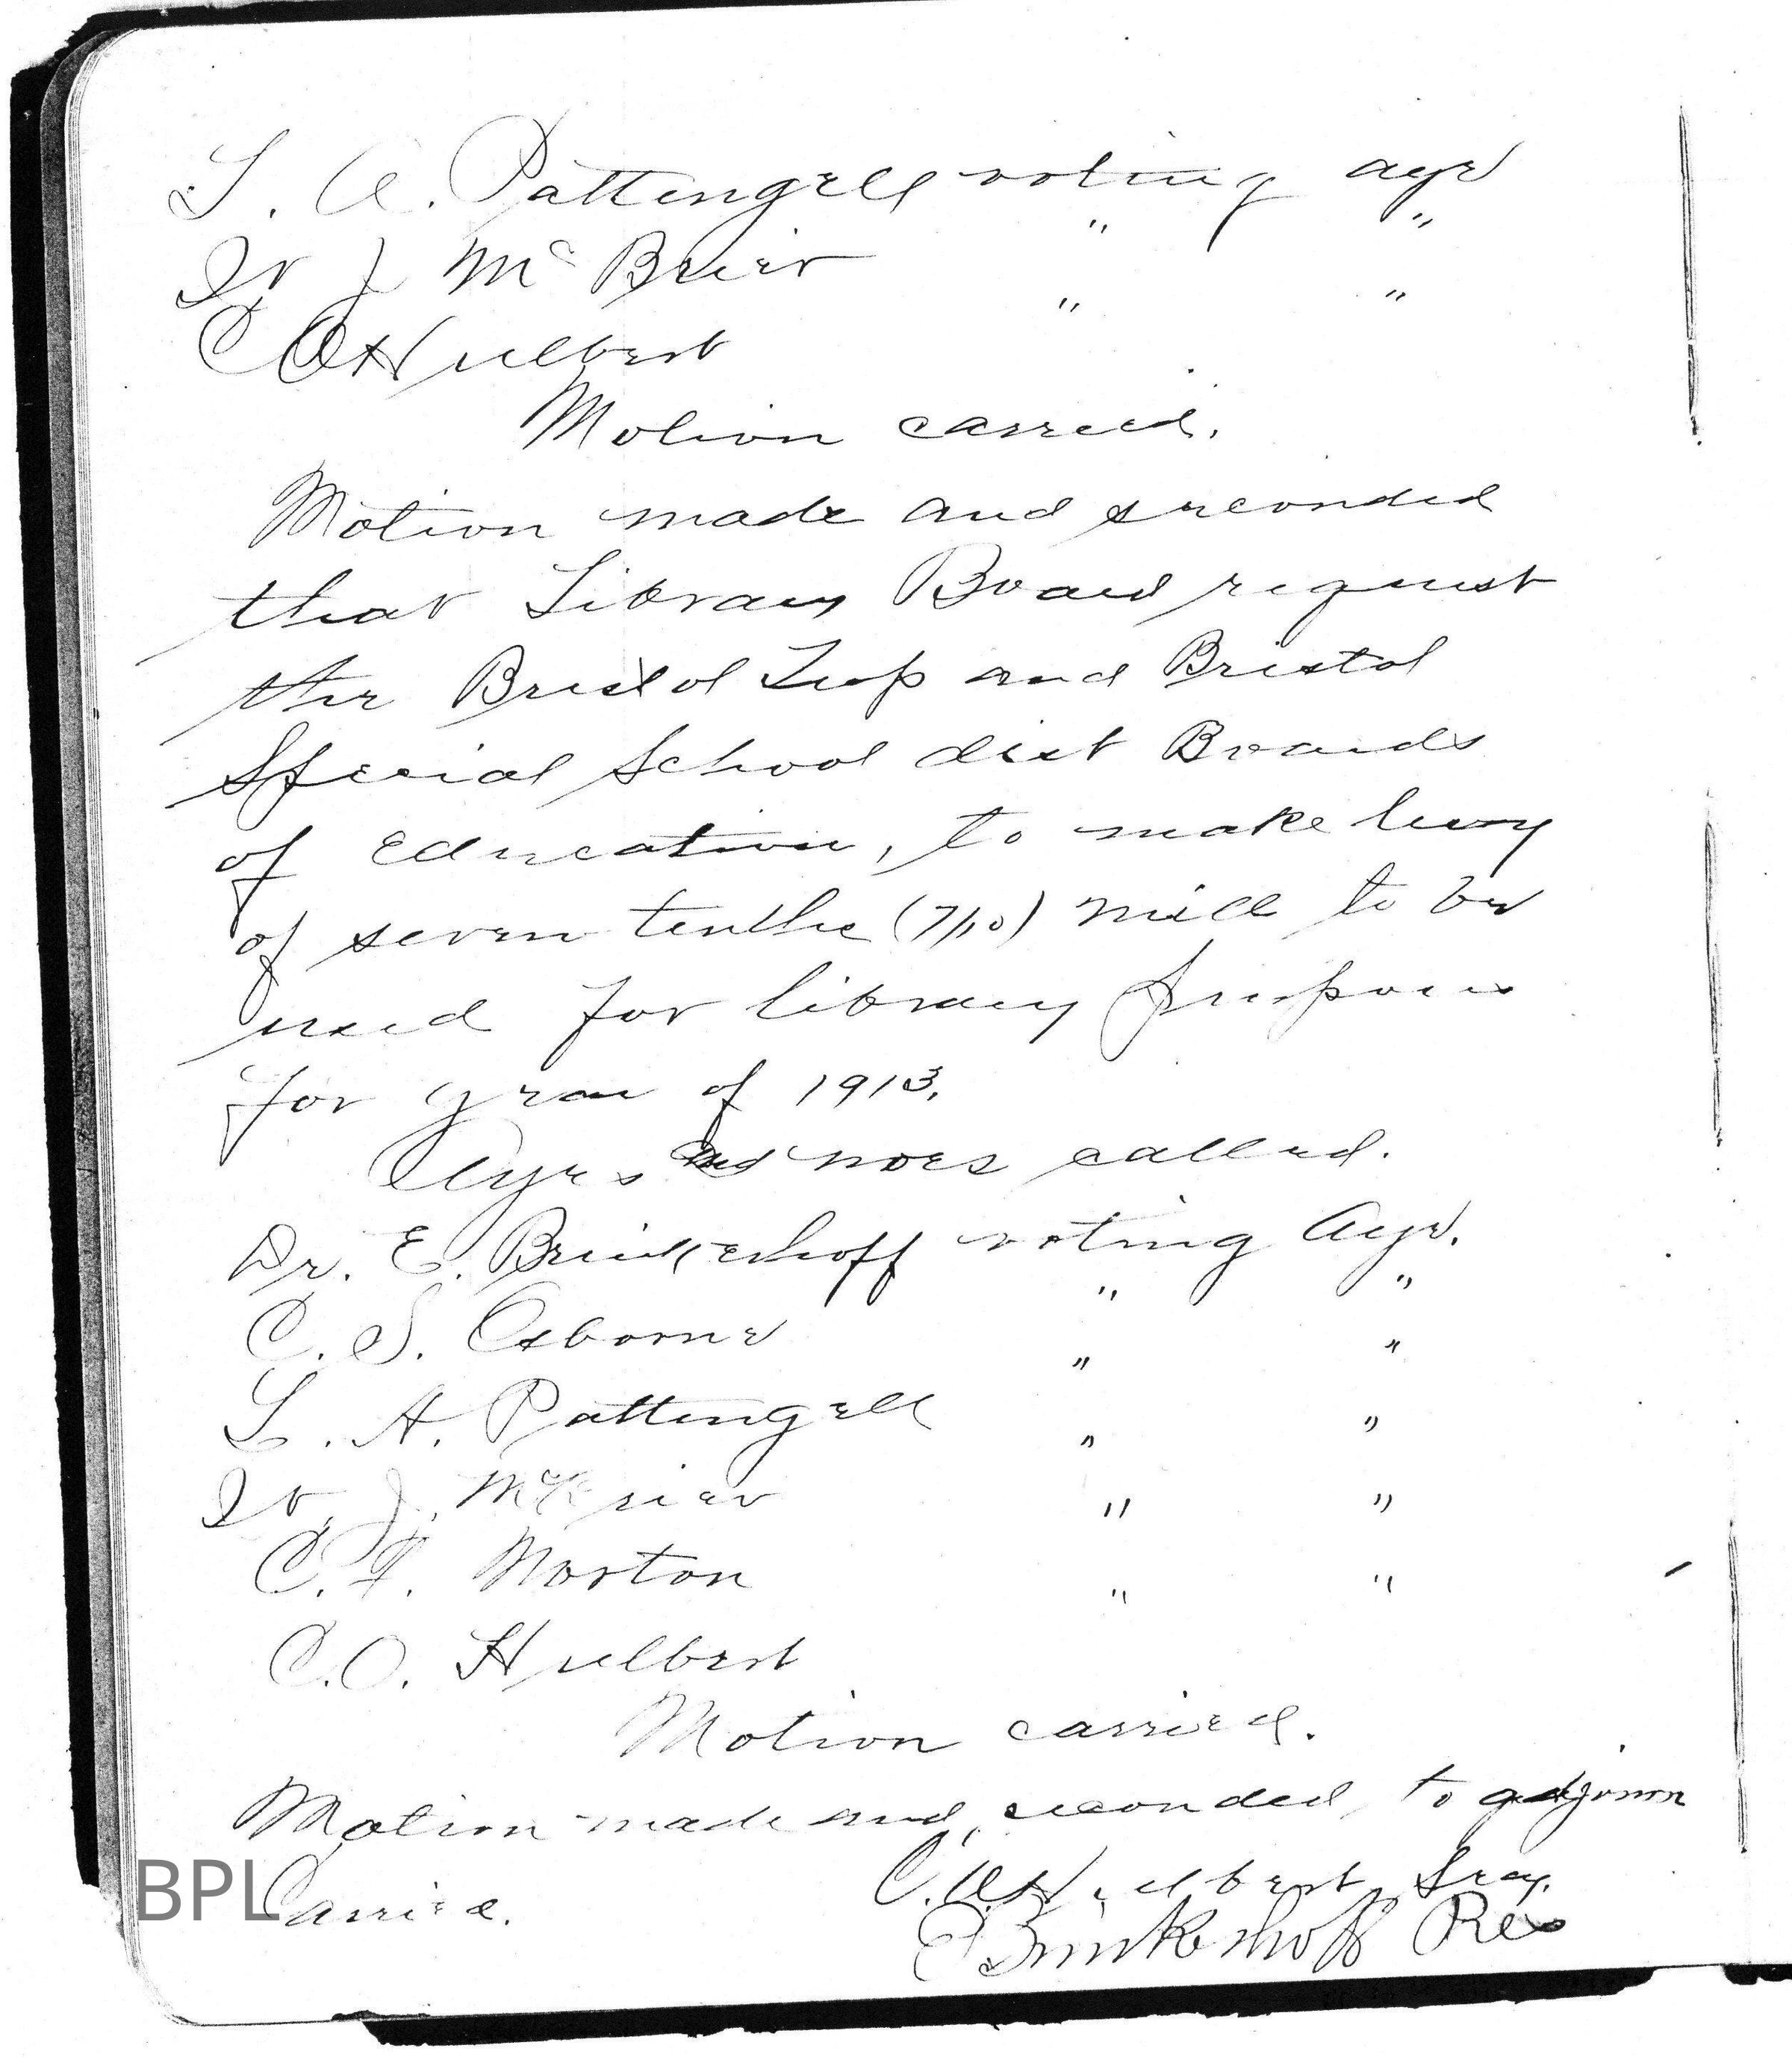 L. A. Pattengell voting aye
W J McBrier " "
C O Hulbert " "
Motion carried.
Motion made and seconded
that Library Board request
the Bristol Twp and Bristol
Special School dist Boards
of Education, to make levy
of seven tenths (7/10) mill to be
used for library purposes
for year of 1913.
Ayes and noes called.
Dr. E. Brinkerhoff voting Aye.
C. S. Osborne " "
L. A. Pattengell " "
W. J. McBrier " "
C. F. Norton " "
C. O. Hulbert " "
Motion carried.
Motion made and seconded to adjourn
Carried.
C. O. Hulbert Secy.
E Brinkerhoff Res
BPL